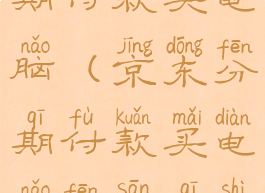 期付款买电
nǎo jīng dōng fēn
脑（京东分
qī fù kuǎn mǎi diàn
期付款买电
nǎo fēn sān qī shì